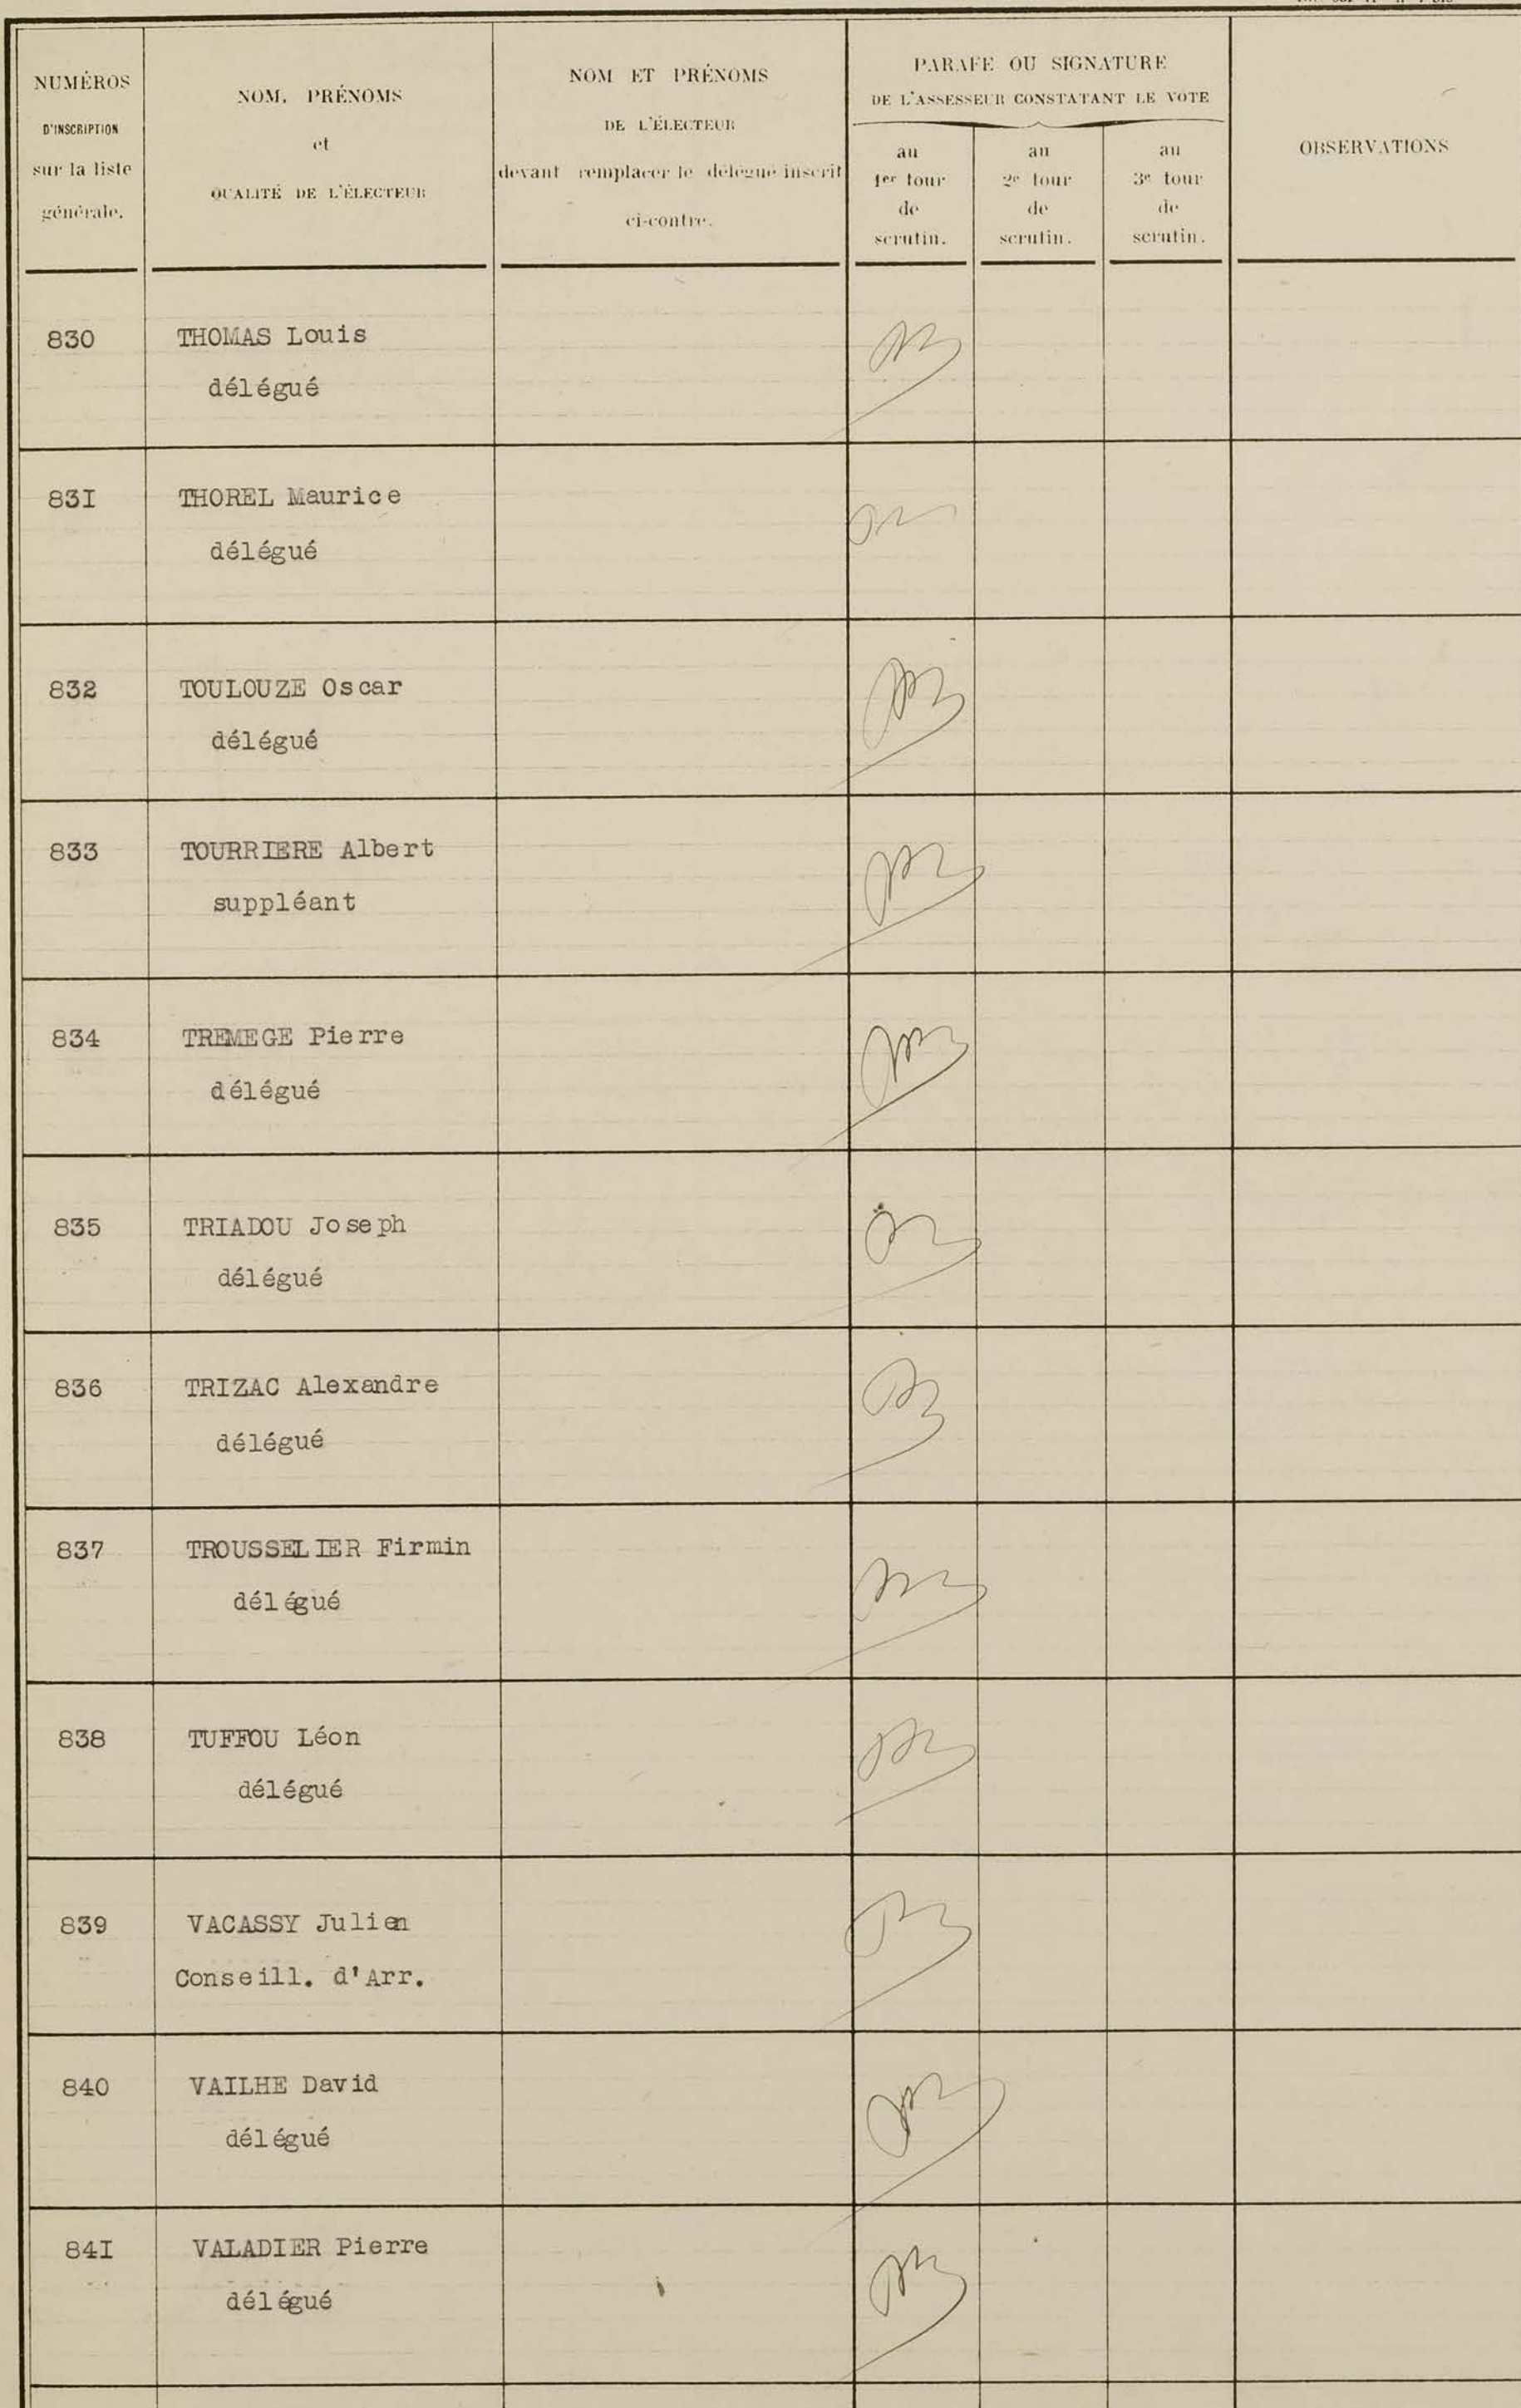 NUMÉROS
D'INSCRIPTION
sur la liste
générale.
NOM, PRÉNOMS
et
QUALITÉ DE L'ÉLECTEUR
NOM ET PRÉNOMS
DE L'ÉLECTEUR
devant remplacer le délégué inscrit
ci-contre.
PARAFE OU SIGNATURE
DE L'ASSESSEUR CONSTATANT LE VOTE
au
1er tour
de
scrutin.
au
2e tour
de
scrutin.
au
3e tour
de
scrutin.
OBSERVATIONS
830 THOMAS Louis
délégué
83I THOREL Maurice
délégué
832 TOULOUZE Oscar
délégué
833 TOURRIERE Albert
suppléant
834 TREMEGE Pierre
délégué
835 TRIADOU Joseph
délégué
836 TRIZAC Alexandre
délégué
837 TROUSSELIER Firmin
délégué
838 TUFFOU Léon
délégué
839 VACASSY Julien
Conseill. d'Arr.
840 VAILHE David
délégué
84I VALADIER Pierre
délégué